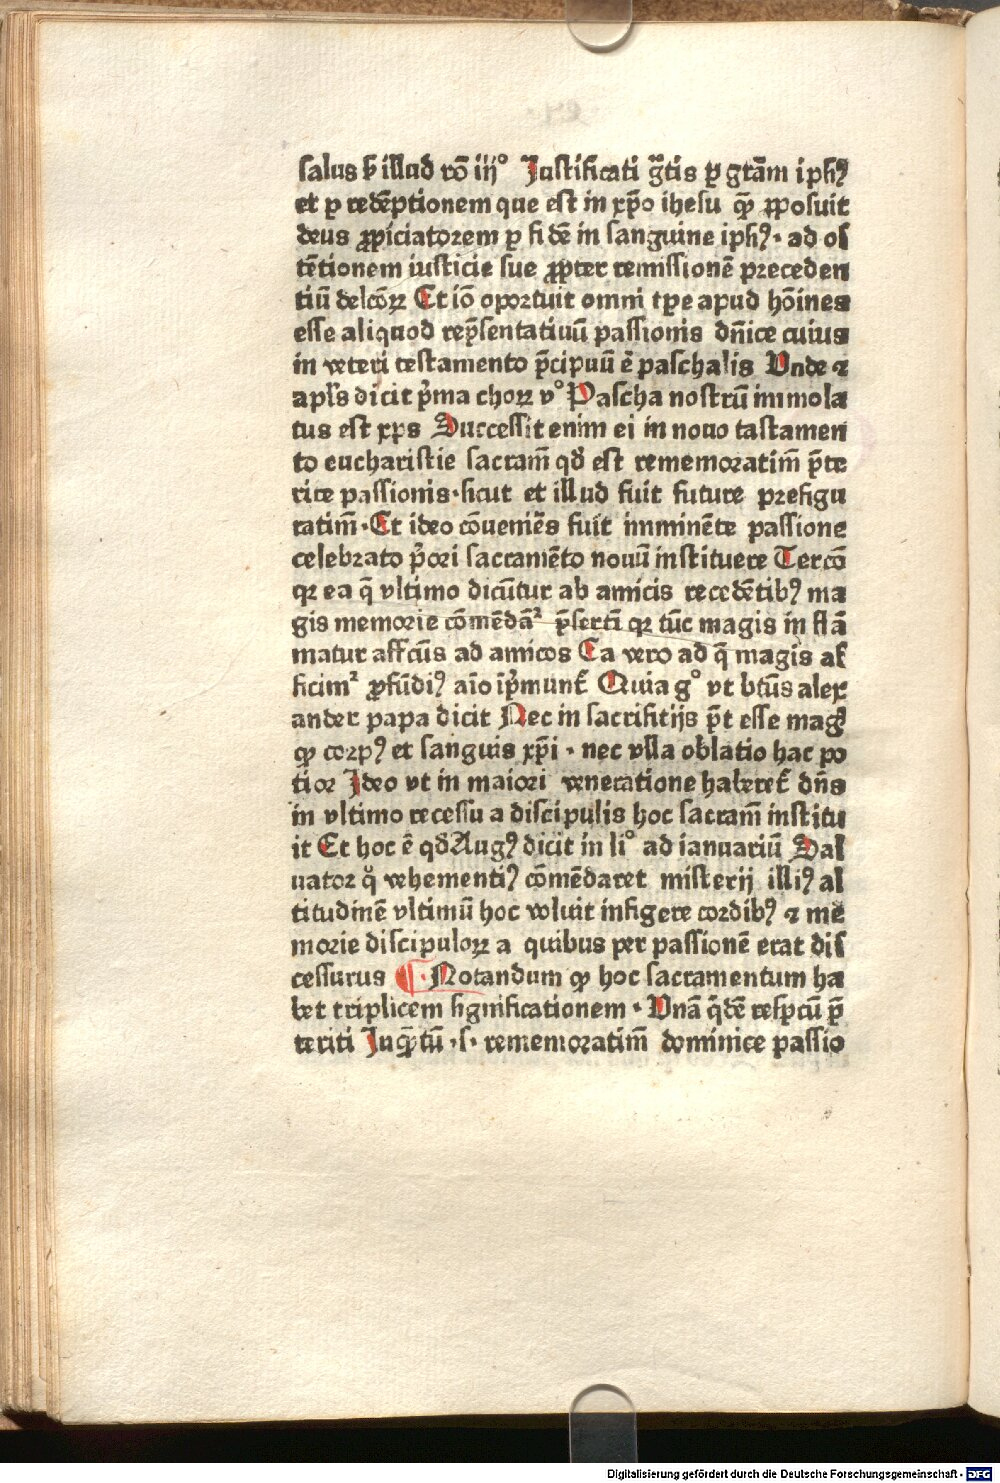 salus ẜm illud rō iijº Justificati gr̄tis ꝑ grām ipsiꝰ
et ꝑ redēptionem que est in xp̄o ihesu qē ꝓposuit
deus ꝓpiciatorem ꝑ fidē in sanguine ipsiꝰ · ad os
tētionem iusticie sue ꝓpter remissionē preceden
tiū delcōꝝ Et iō oportuit omni tp̄e apud hōines
esse aliquod rep̄sentatiuū passionis dn̄ice cuius
in veteri testamento p̄cipuū ē paschalis Unde ⁊
apl's dicit p̄ma choꝝ vº Pascha nostrū immola
tus est xp̄s Successit enim ei in nouo tastamen
to eucharistie sacram̄ qd̄ est rememoratim̄ p̄te
rite passionis · sicut et illud fuit future prefigu
ratim̄ · Et ideo cōueniēs fuit imminēte passione
celebrato p̄ori sacramēto nouū instituere Tercō
qꝛ ea q̄ vltimo dicūtur ab amicis recedētibꝰ ma
gis memorie cōmēdāt² p̄sertī qꝛ tūc magis in flā
matur affcūs ad amicos Ea vero ad q̄ magis af
ficim² ꝓfūdiꝰ aīo ip̄munt² Quia gº vt bt̄us alex
ander papa dicit Nec in sacrifitijs p̄t esse mag
ꝙ corpꝰ et sanguis xp̄i · nec vlla oblatio hac po
tior Ideo vt in maiori veneratione haberet² dn̄s
in vltimo recessu a discipulis hoc sacram̄ institu
it Et hoc ē qd̄ Augꝰ dicit in liº ad ianuariū Sal
uator qº vehementiꝰ cōmēdaret misterij illiꝰ al
titudinē vltimū hoc voluit infigere cordibꝰ ⁊ me
morie discipuloꝝ a quibus per passionē erat dis
cessurus ¶ · Notandum ꝙ hoc sacramentum ha
bet triplicem significationem · Unā q̄dē respcū p̄
teriti Inq̄tū · s · rememoratim̄ dominice passio
Digitalisierung gefördert durch die Deutsche Forschungsgemeinschaft - DFG